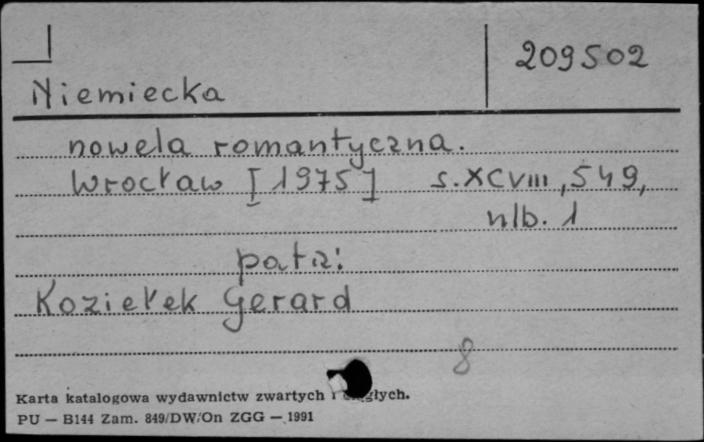 209502
Niemiecka
nowela romantyczna.
Wrocław [1975] s. XCVIII, 549,
nlb. 1
patrz:
Koziełek Gerard
8
Karta katalogowa wydawnictw zwartych i ciągłych.
PU — B144 Zam. 849/DW/On ZGG — 1991